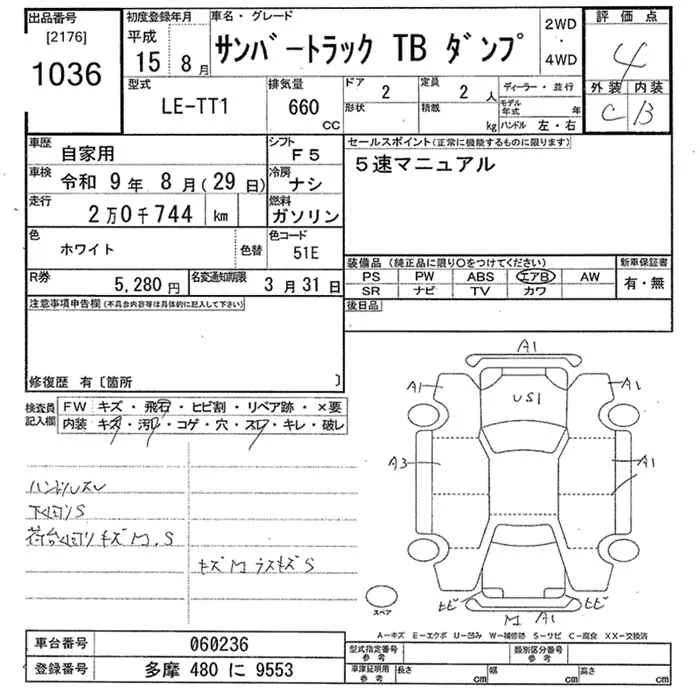 出品番号
[2176]
1036
初度登録年月
平成
15年 8月
車名・グレード
サンバートラック TB ダンプ
2WD
・
4WD
評価点
4
外装 内装
C B
型式
LE-TT1
排気量
660
CC
ドア
2
形状
定員
2 人
積載
kg
ディーラー・並行
モデル年式 年
ハンドル 左・右
車歴
自家用
シフト
F5
車検
令和 9年 8月(29日)
冷房
ナシ
走行
2万0千744 km
燃料
ガソリン
色
ホワイト
色替
色コード
51E
R券
5,280円
名変通知期限
3月31日
セールスポイント(正常に機能するものに限ります)
5速マニュアル
装備品 (純正品に限り〇をつけてください)
PS PW ABS エアB AW
SR ナビ TV カワ
新車保証書
有・無
後日品
注意事項申告欄(不具合内容等は具体的に記入して下さい)
修復歴 有〔箇所 〕
検査員記入欄
FW キズ・飛石・ヒビ割・リペア跡・×要
内装 キズ・汚れ・コゲ・穴・スレ・キレ・破レ
ハンドルスレ
下回りS
荷台回りキズM、S
キズM ラスキズS
A1
A1
A1
US1
A3
A1
ヒビ
ヒビ
M A1
スペア
A-キズ E-エクボ U-凹み W-補修跡 S-サビ C-腐食 XX-交換済
車台番号
060236
登録番号
多摩 480 に 9553
型式指定番号
参考
類別区分番号
参考
車庫証明用
参考
長さ cm
幅 cm
高さ cm